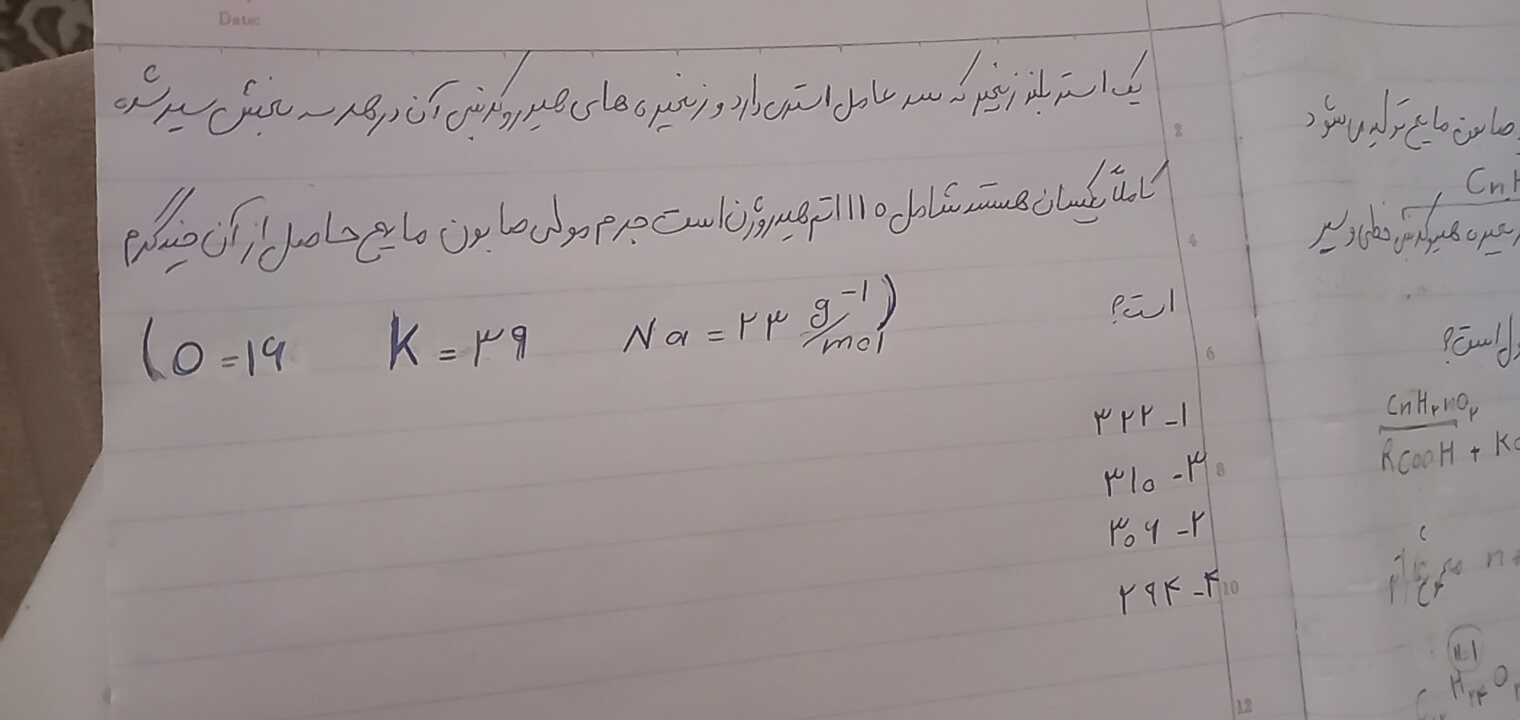 Date:
یک استر بلند زنجیر که سه عامل استری دارد و زنجیره های هیدروکربنی آن در هر سه بخش سیر شده
کاملاً یکسان هستند شامل ۱۱۰ اتم هیدروژن است جرم مولی صابون مایع حاصل از آن چند گرم
است؟
(O = ۱۶ K = ۳۹ Na = ۲۳ g/mol⁻¹)
۱- ۳۲۲
۳- ۳۱۰
۲- ۳۰۶
۴- ۲۹۴
2
4
6
8
10
12
صابون مایع تولید می شود
CnH
هیدروکربنی خطی و سیر
است؟
CnH۲nO۲
RCOOH + K
مجموع n+